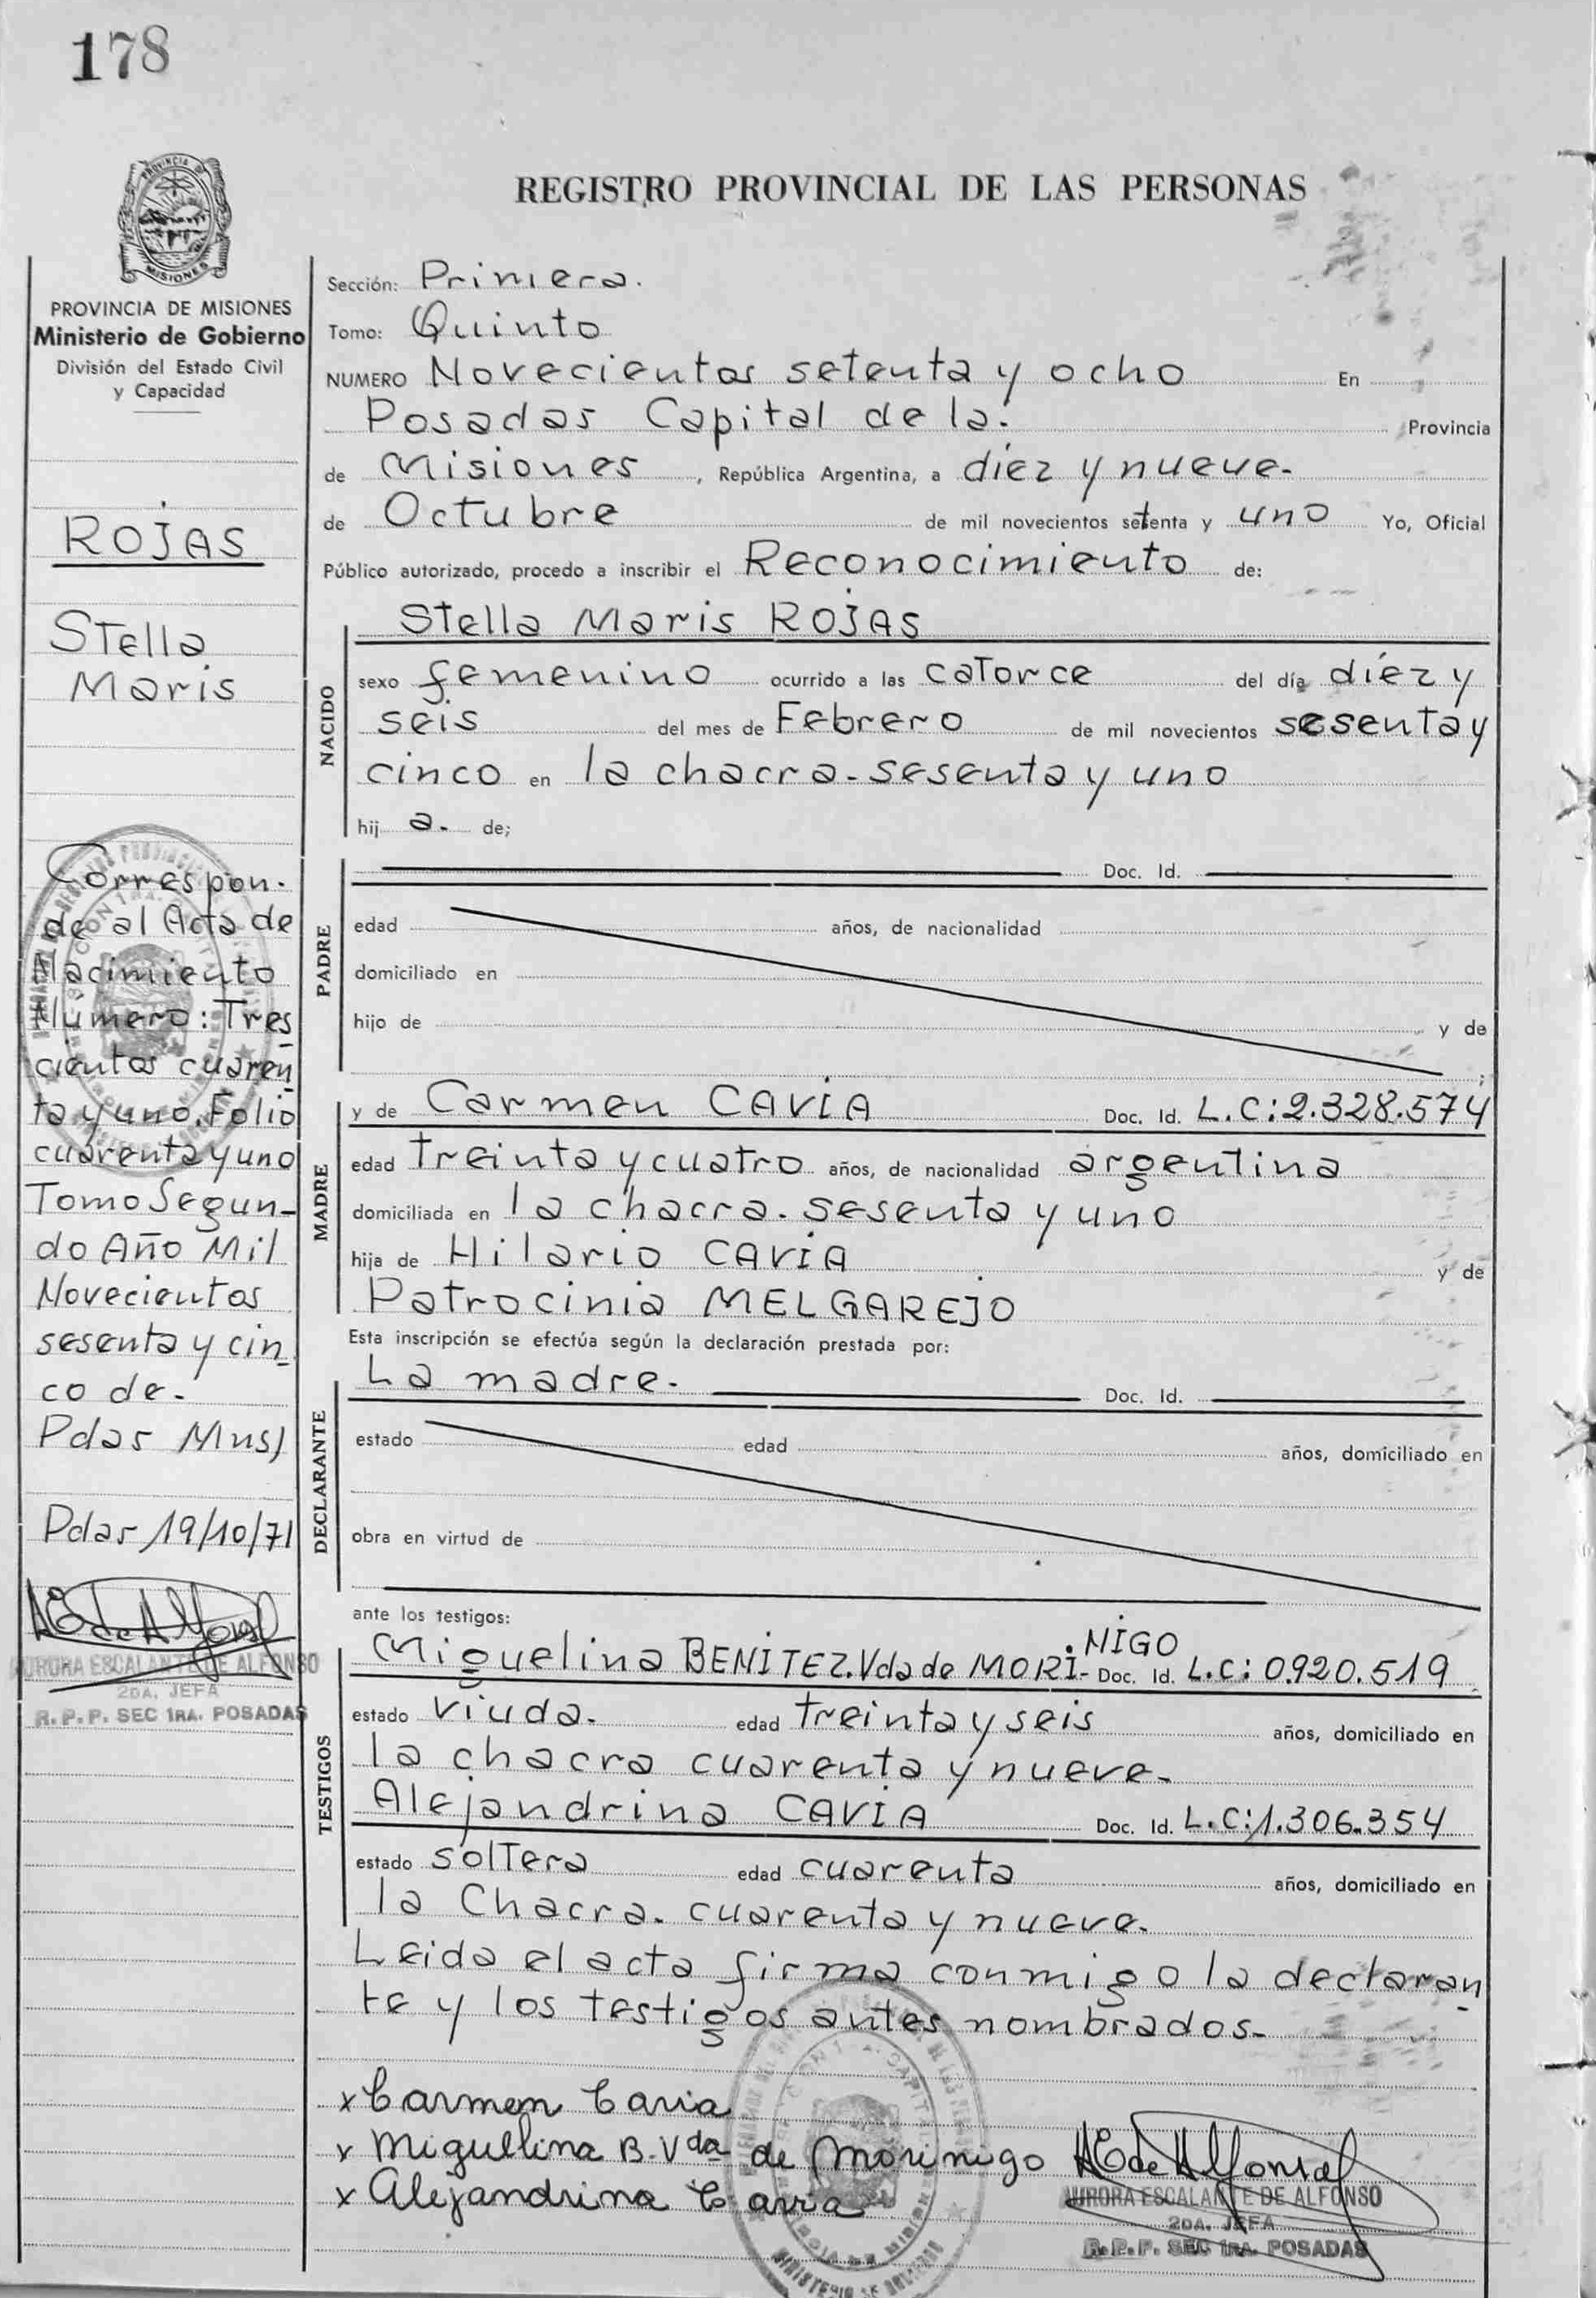 178
PROVINCIA DE
MISIONES
REGISTRO PROVINCIAL DE LAS PERSONAS
PROVINCIA DE MISIONES
Ministerio de Gobierno
División del Estado Civil
y Capacidad
ROJAS
Stella
Maris
Correspon-
de al Acta de
Nacimiento
Número: Tres
cientos cuaren
ta y uno. Folio
cuarenta y uno
Tomo Segun-
do Año Mil
Novecientos
sesenta y cin-
co de.
Pdas Mns)
Pdas 19/10/71
AE de Alfonso
AURORA ESCALANTE DE ALFONSO
2DA. JEFA
R. P. P. SEC 1RA. POSADAS
Sección: Primera.
Tomo: Quinto
NUMERO Novecientos setenta y ocho En
Posadas Capital de la. Provincia
de Misiones, República Argentina, a diez y nueve-
de Octubre de mil novecientos setenta y uno Yo, Oficial
Público autorizado, procedo a inscribir el Reconocimiento de:
NACIDO
Stella Maris ROJAS
sexo femenino ocurrido a las catorce del día diez y
seis del mes de Febrero de mil novecientos sesenta y
cinco en la chacra-sesenta y uno
hij a. de;
PADRE
Doc. Id.
edad años, de nacionalidad
domiciliado en
hijo de y de
;
MADRE
y de Carmen CAVIA Doc. Id. L.C:2.328.574
edad treinta y cuatro años, de nacionalidad argentina
domiciliada en la chacra. sesenta y uno
hija de Hilario CAVIA y de
Patrocinia MELGAREJO
Esta inscripción se efectúa según la declaración prestada por:
DECLARANTE
La madre. Doc. Id.
estado edad años, domiciliado en
obra en virtud de
ante los testigos:
TESTIGOS
Miguelina BENITEZ. Vda de MORI- NIGO Doc. Id. L.C: 0.920.519
estado viuda.- edad treinta y seis años, domiciliado en
la chacra cuarenta y nueve-
Alejandrina CAVIA Doc. Id. L.C:1.306.354
estado soltera edad cuarenta años, domiciliado en
la Chacra. cuarenta y nueve.
Leida el acta firma conmigo la declaran
te y los testigos antes nombrados-
x Carmen Cavia
x Miguelina B. Vda de Morinigo AE de Alfonso
x Alejandrina Cavia
AURORA ESCALANTE DE ALFONSO
2DA. JEFA
R. P. P. SEC 1RA. POSADAS